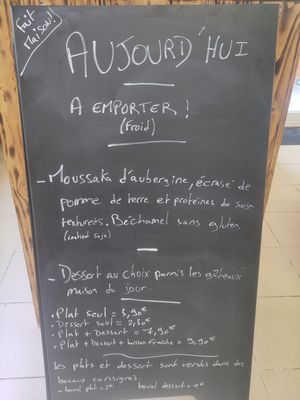 Fait
Maison!!
AUJOURD'HUI
A EMPORTER!
(Froid)
- Moussaka d'aubergine, écrasé de
pomme de terre et protéines de soja
texturées. Béchamel sans gluten.
(contient soja)
- Dessert au choix parmis les gâteaux
maison du jour.
• Plat seul = 5,90€
• Dessert seul = 2,50€
• Plat + Dessert = 7,90€
• Plat + Dessert + boisson fraîche = 9,90€
Les plats et dessert sont vendus dans des
bocaux consignés.
- bocal plat = 2€ bocal dessert = 1€